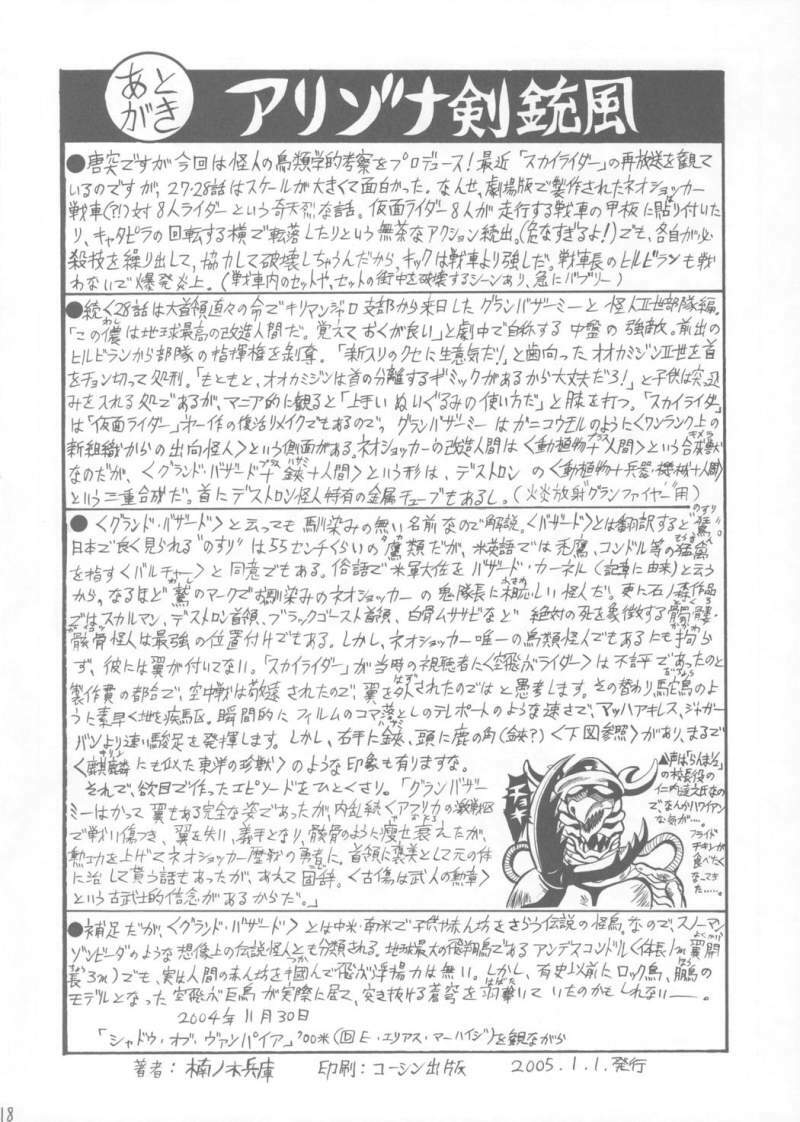 あとがき
アリゾナ剣銃風
●唐突ですが今回は怪人の鳥類学的考察をプロデュース!最近「スカイライダー」の再放送を観て
いるのですが、27・28話はスケールが大きくて面白かった。なんせ、劇場版で製作されたネオショッカー
戦車(?!)対8人ライダーという奇天烈な話。仮面ライダー8人が走行する戦車の甲板に貼り付いた
り、キャタピラの回転する横で転落したりという無茶なアクション続出。(危なすぎるよ!)でも、各自が必
殺技を繰り出して、協力して破壊しちゃうんだから、キックは戦車より強しだ。戦車長のヒルビランも戦
わないで爆発炎上。(戦車内のセットや、セットの街中を破壊するシーンあり、急にバブリー)
●続く28話は大首領直々の命でキリマンジャロ支部から来日したグランバザーミーと怪人Ⅱ世部隊編。
「この儂は地球最高の改造人間だ。覚えておくが良い」と劇中で自称する中盤の強敵。前出の
ヒルビランから部隊の指揮権を剥奪。「新入りのクセに生意気だ!」と歯向ったオオカミジンⅡ世を首
をチョン切って処刑。「もともと、オオカミジンは首の分離するギミックがあるから大丈夫だろ!」と子供は突込
みを入れる処であるが、マニア的に観ると「上手いぬいぐるみの使い方だ」と膝を打つ。「スカイライダー」
は「仮面ライダー」第一作の復活リメイクでもあるので、グランバザーミーはガニコウモルのように〈ワンランク上の
新組織からの出向怪人〉という側面がある。ネオショッカーの改造人間は〈動植物+人間〉という合成獣
なのだが、〈グランド・バザード+鋏+人間〉という形は、デストロンの〈動植物+兵器・機械+人間〉
という三重合成だ。首にデストロン怪人特有の金属チューブもあるし。(火炎放射“グランファイヤー”用)
●〈グランド・バザード〉と云っても馴染みの無い名前なので解説。〈バザード〉とは翻訳すると“鵟”。
日本で良く見られる“のすり”は55センチくらいの鷹類だが、米英語では禿鷹、コンドル等の猛禽
を指す〈バルチャー〉と同意でもある。俗語で米軍大佐をバザード・カーネル(記章に由来)と云う
から。なるほど鷲のマークでお馴染みのネオショッカーの鬼隊長に相応しい怪人だ。更に石ノ森作品
ではスカルマン、デストロン首領、ブラックゴースト首領、白骨ムササビなど絶対の死を象徴する髑髏・
骸骨怪人は最強の位置付けでもある。しかし、ネオショッカー唯一の鳥類怪人でもあるにも拘ら
ず、彼には翼が付いてない。「スカイライダー」が当時の視聴者に〈空飛ぶライダー〉は不評であったのと
製作費の都合で、空中戦は敬遠されたので翼を外されたのではと愚考します。その替わり駝鳥のよ
うに素早く地を疾駆。瞬間的にフィルムのコマ落としのテレポートのような速さで、マッハアキレス、ジャガー
バンより速い駿足を発揮します。しかし、右手に鋏、頭に鹿の角(鋏?)〈下図参照〉があり、まるで
〈麒麟にも似た東洋の珍獣〉のような印象も有りますな。
それで、欲目で作ったエピソードをひとくさり。「グランバザー
ミーはかつて翼もある完全な姿であったが、内乱続くアフリカの激戦区
で戦い傷つき、翼を失い、義手となり、骸骨のように痩せ衰えたが、
勲功を上げてネオショッカー歴戦の勇者に。首領に褒美として元の体
に治して貰う話もあったが、あえて固辞。〈古傷は武人の勲章〉
という古武士的信念があるからだ。」
チョキ
▲声は「らんま½」
の校長役の
仁内達之氏なの
でなんかハワイアン
な気が…。
フライド
チキンが
食べたく
なってき
た……。
●補足だが、〈グランド・バザード〉とは中米・南米で子供や赤ん坊をさらう伝説の怪鳥。なので、スノーマン
ゾンビーダのような想像上の伝説怪人とも分類される。地球最大の飛翔鳥であるアンデスコンドル〈体長1m翼開
長3m〉でも、実は人間の赤ん坊を掴んで飛ぶ浮揚力は無い。しかし、有史以前にロック鳥、鵬の
モデルとなった空飛ぶ巨鳥が実際に居て、突き抜ける蒼穹を羽撃いていたのかもしれない――。
2004年11月30日
「シャドウ・オブ・ヴァンパイア」'00米(回E・エリアス・マーハイジ)を観ながら
著者:楠ノ木兵庫 印刷:コーシン出版 2005.1.1.発行
18